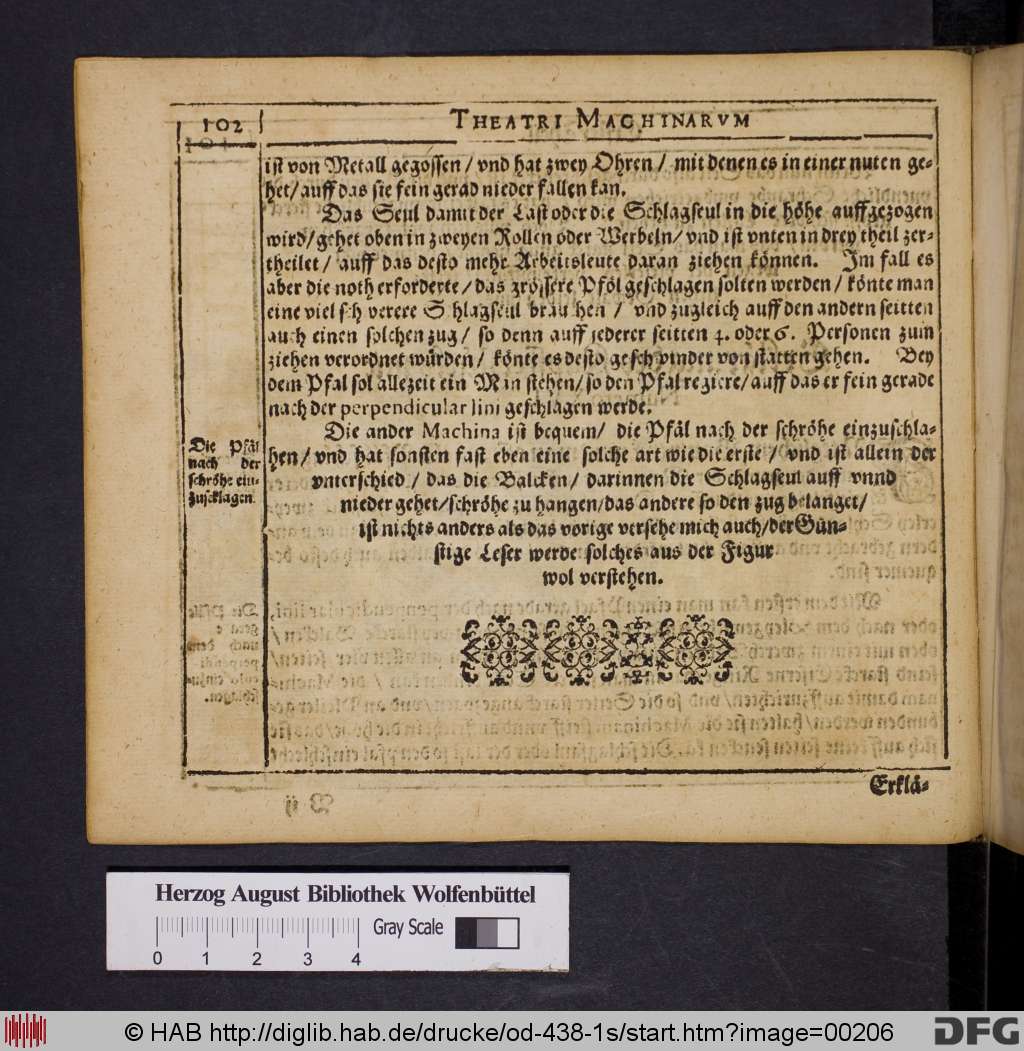 102
THEATRI MACHINARVM
ist von Metall gegossen / vnd hat zwey Ohren / mit denen es in einer nuten ge-
het / auff das sie fein gerad nieder fallen kan.
Das Seul damit der Last oder die Schlagseul in die höhe auffgezogen
wird / gehet oben in zweyen Rollen oder Werbeln / vnd ist vnten in drey theil zer-
theilet / auff das desto mehr Arbeitsleute daran ziehen können. Im fall es
aber die noth erforderte / das grössere Pföl geschlagen solten werden / könte man
eine viel sch verere S hlagseul brau hen / vnd zugleich auff den andern seitten
auch einen solchen zug / so denn auff jederer seitten 4. oder 6. Personen zum
ziehen verordnet würden / könte es desto gesch vinder von statten gehen. Bey
dem Pfal sol allezeit ein Man stehen / so den Pfal regiere / auff das er fein gerade
nach der perpendicular lini geschlagen werde.
Die ander Machina ist bequem / die Pfäl nach der schröhe einzuschla-
hen / vnd hat sonsten fast eben eine solche art wie die erste / vnd ist allein der
vnterschied / das die Balcken / darinnen die Schlagseul auff vnnd
nieder gehet / schröhe zu hangen / das andere so den zug belanget /
ist nichts anders als das vorige versehe mich auch / der Gün-
stige Leser werde solches aus der Figur
wol verstehen.
Die Pfäl
nach der
schröhe ein-
zuschlagen.
Erklä-
Herzog August Bibliothek Wolfenbüttel
Gray Scale
0 1 2 3 4
© HAB http://diglib.hab.de/drucke/od-438-1s/start.htm?image=00206
DFG